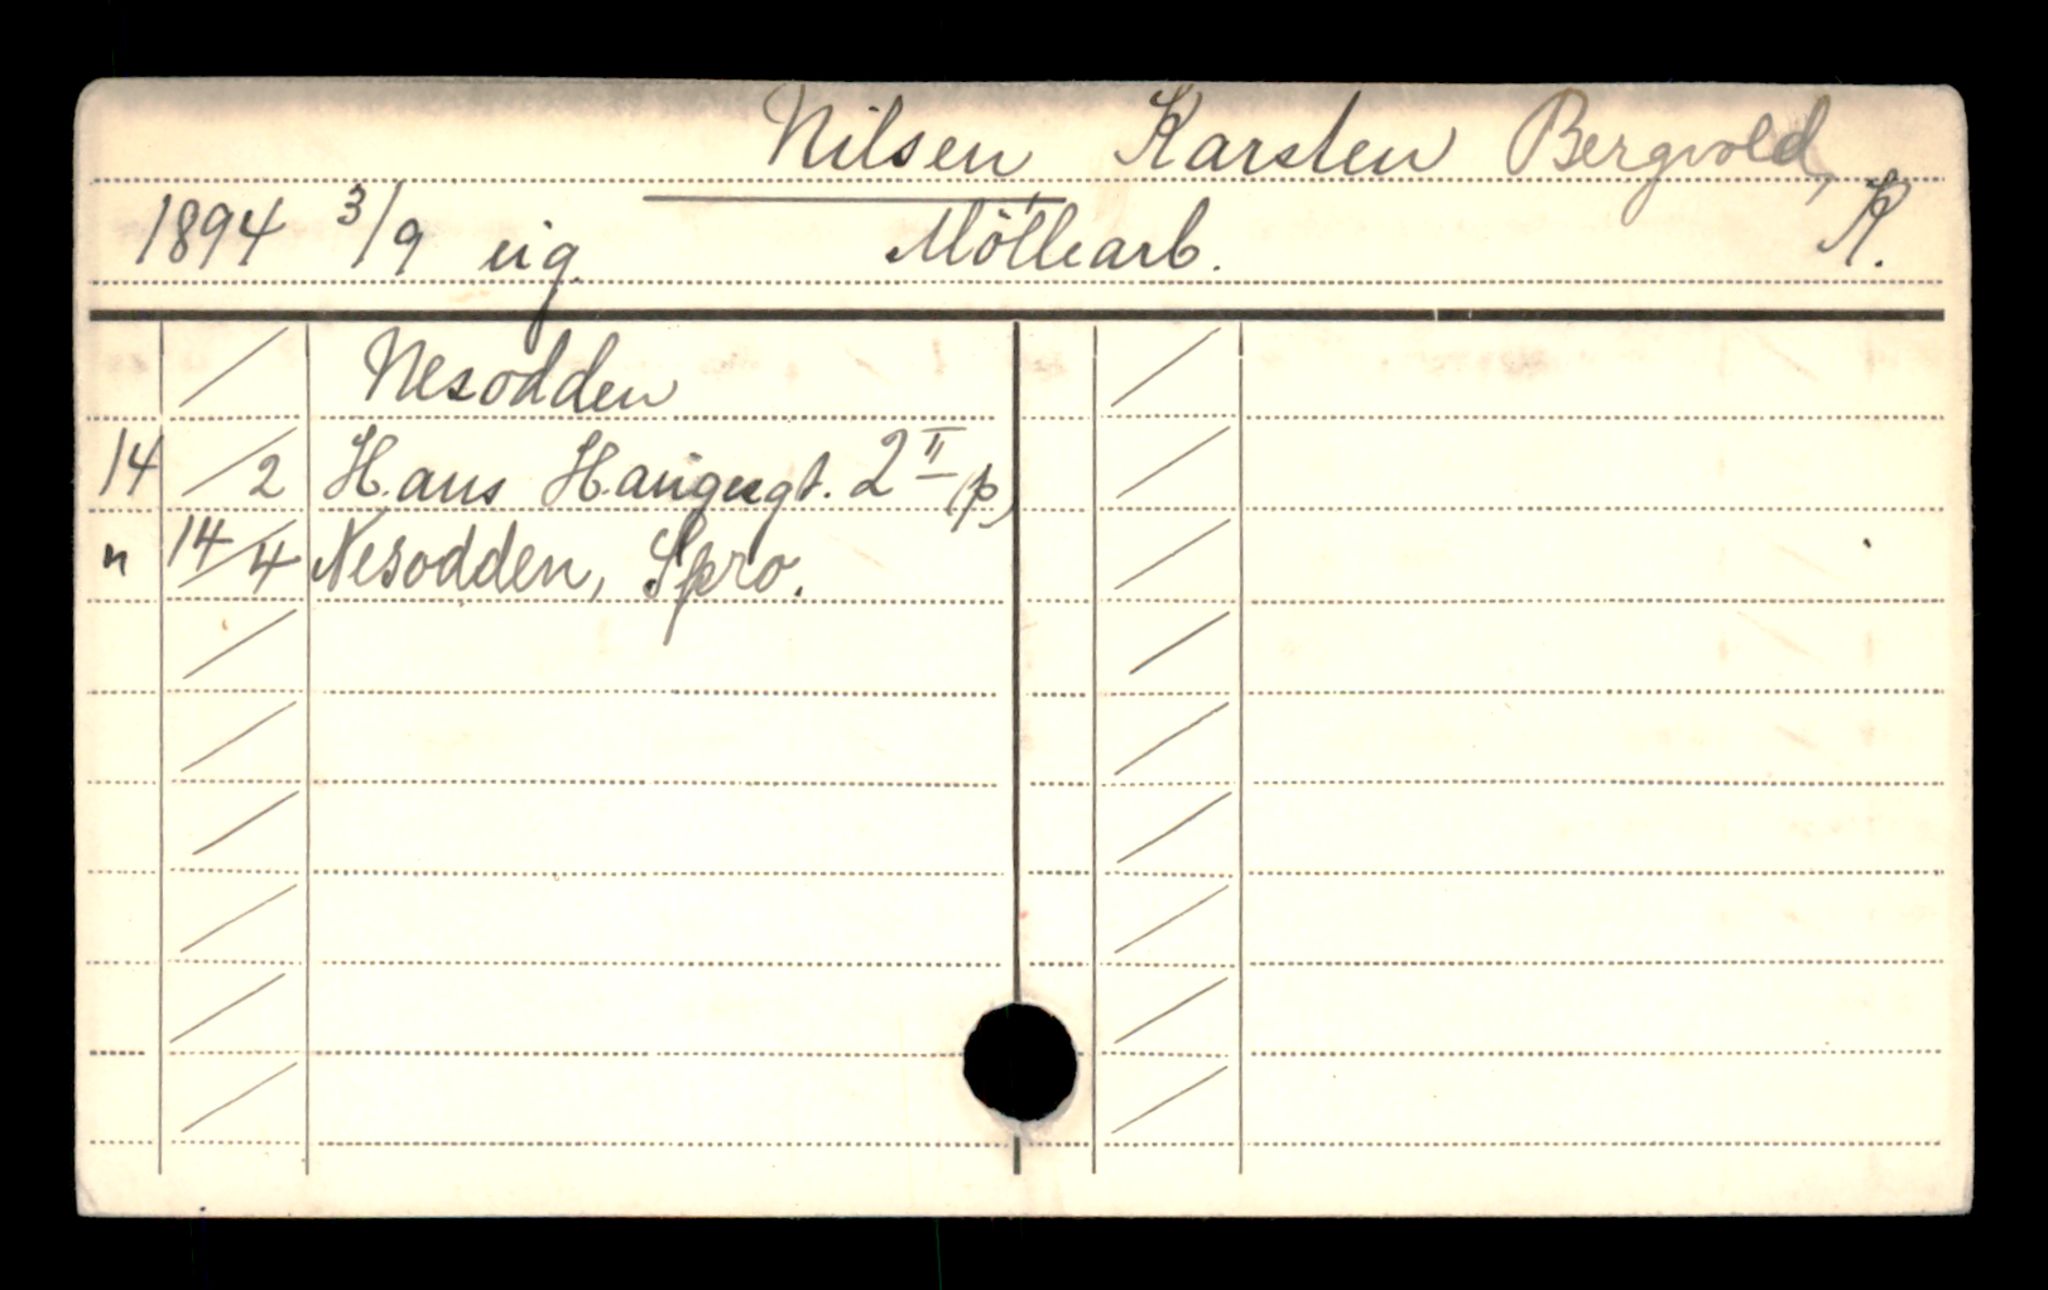 Nilsen Karsten Bergvold,
1894 3/9 ug. Möllearb. K.
Nesodden
14 /2 Hans Haugesgt. 2 II (p)
" 14/4 Nesodden, Spro.